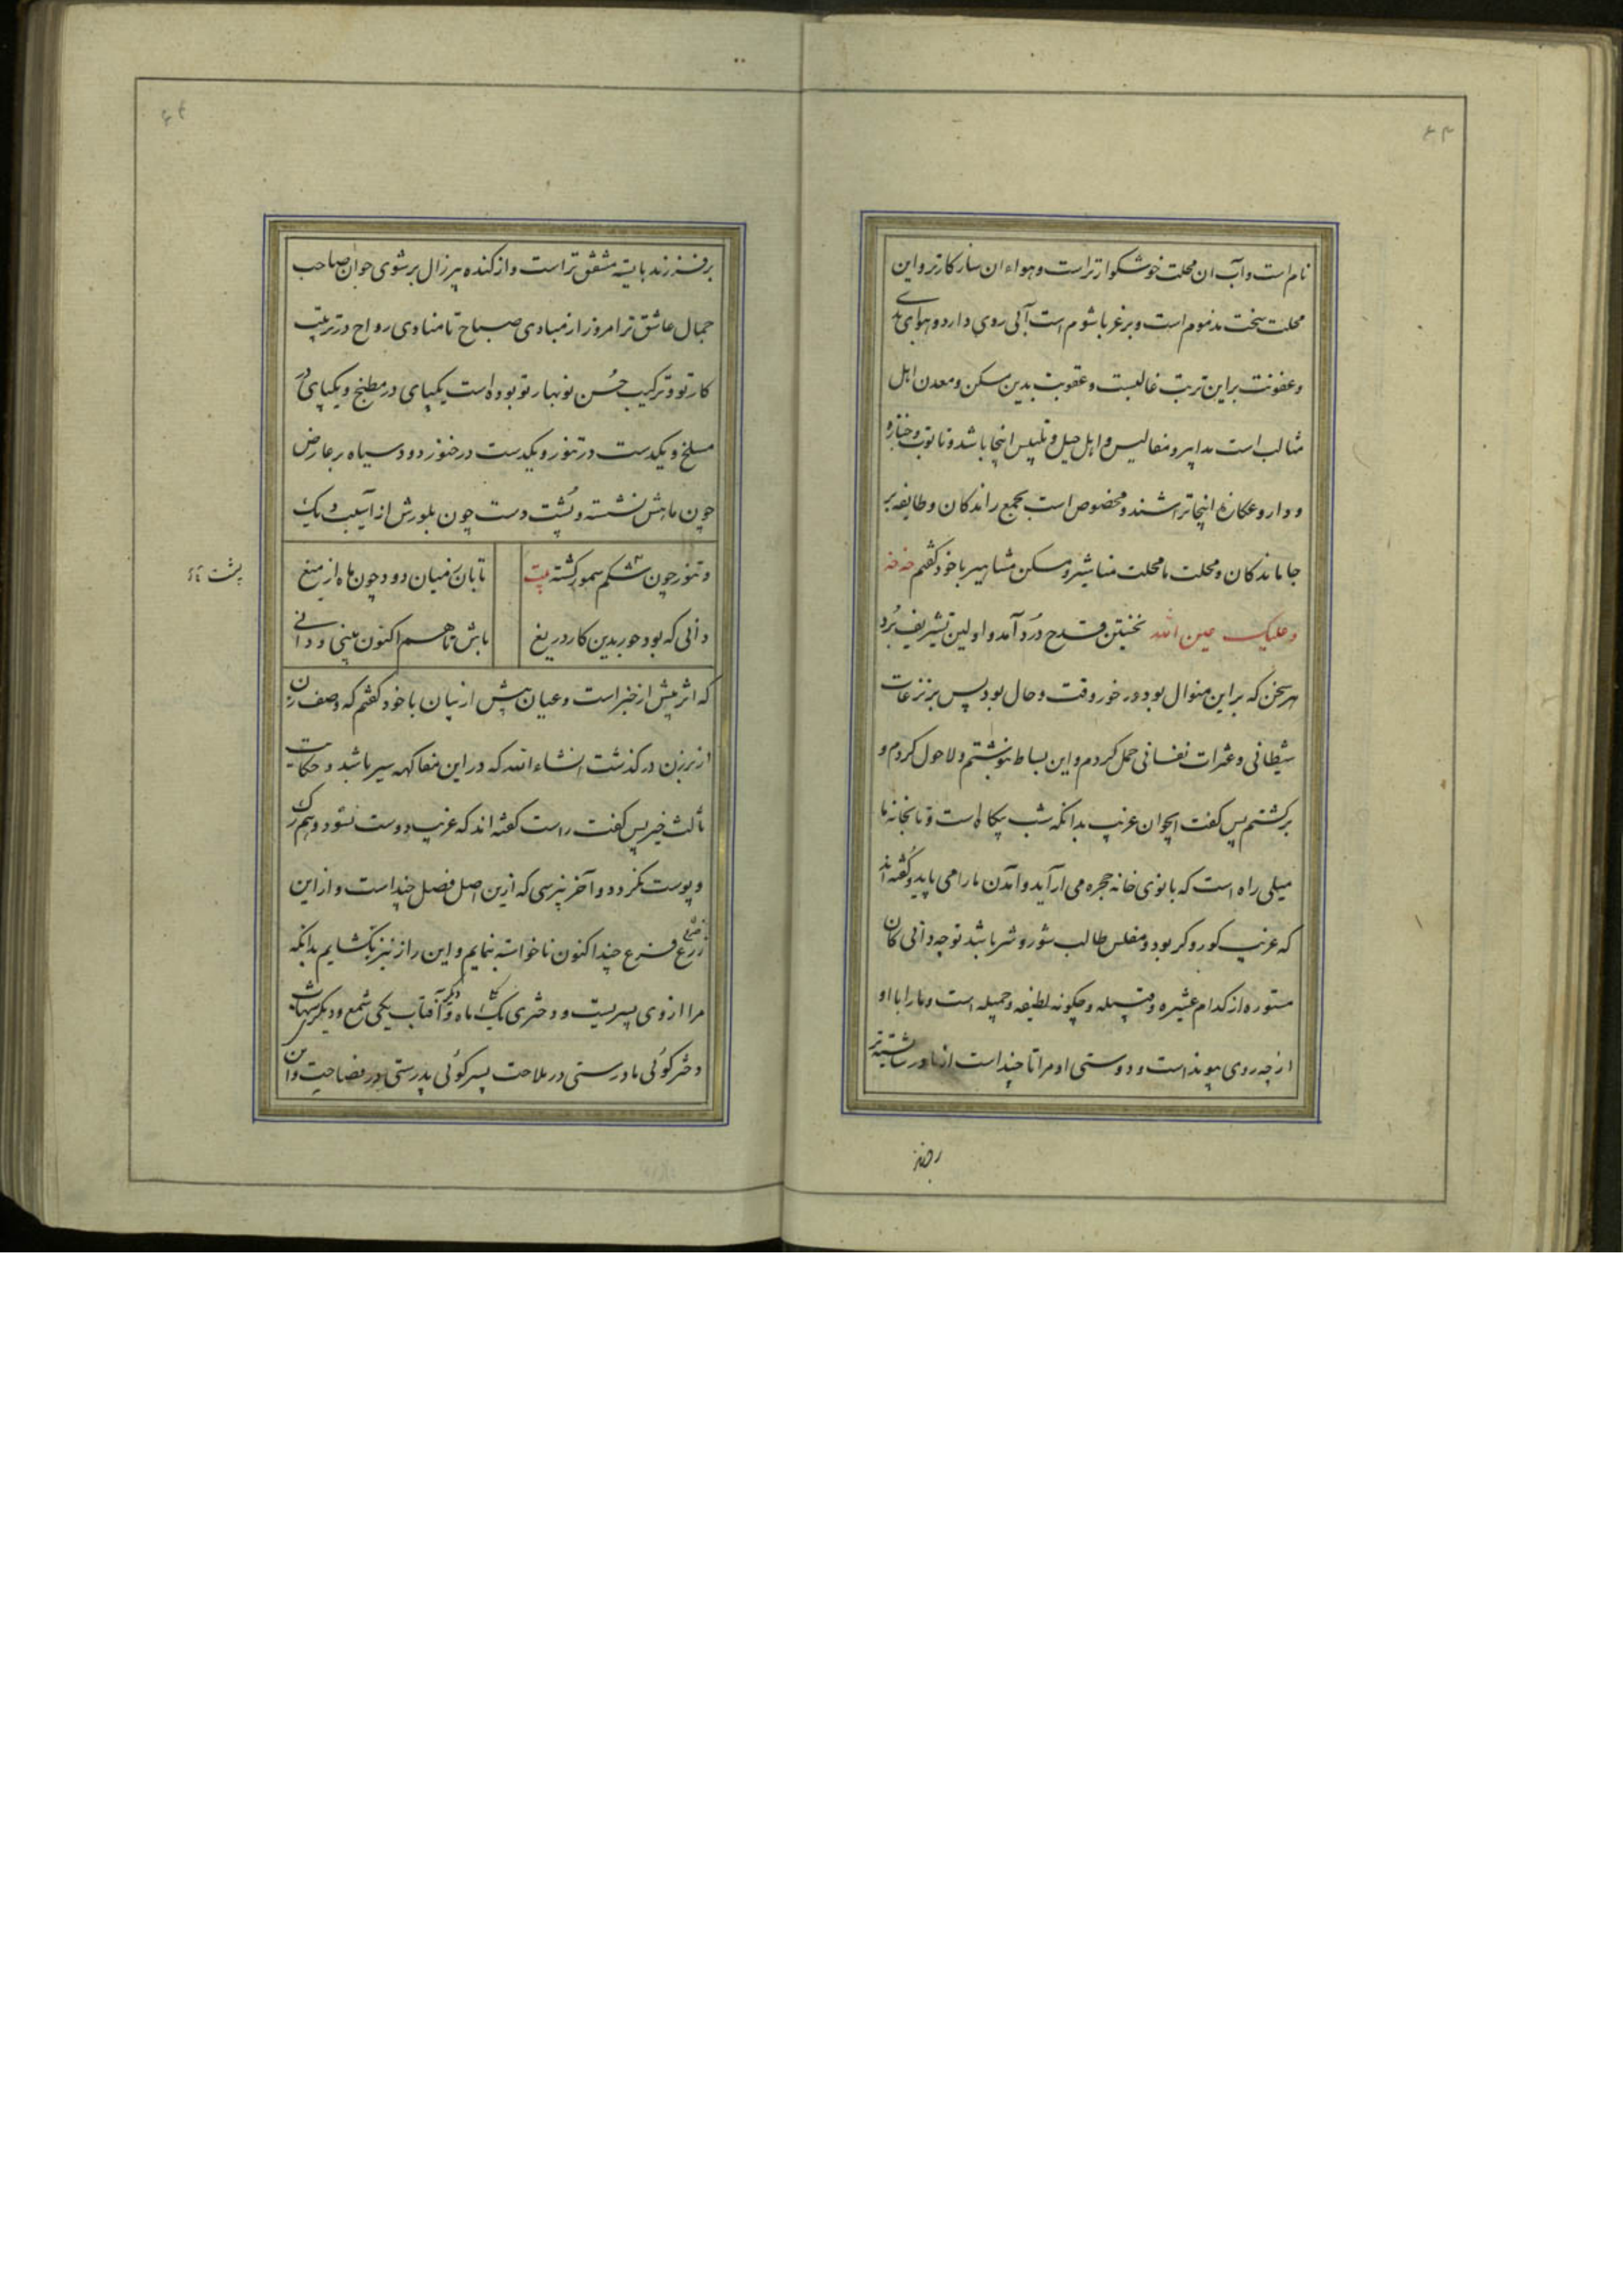 نام است و آب ان محلت خوشکوارتر است و هواء ان سازکارتر و این
محلت سخت مذموم است و بر غربا شوم است آبی روی دارد و هوای
و عفونت براین تربت غالبست و عقوبت بدین مسکن و معدن اهل
مثالب است مدابیر و مفالیس و اهل حیل و تلبیس اینجا باشد و تابوت و جنازه
و دار و عکازه اینجا تراشند و مخصوص است بجمع راندکان و طایفه بر
جا ماندکان و محلت ما محلت مناشیر و مسکن مشاهیر با خود کفتم خه خه
و علیک عین الله نخستین قدح دُرد آمد و اولین تشریف بُرد
هر سخن که براین منوال بود در خور وقت و حال بود پس بر نزغات
شیطانی و عثرات نفسانی حمل کردم و این بساط بنوشتم و لاحول کردم و
برکشتم پس کفت ایجوان غریب بدانکه شب بیکاه است و تا بخانه ما
میلی راه است که بانوی خانه حجره می ارآید و آمدن ما را می پاید و کفته اند
که غریب کور و کر بود و مفلس طالب شور و شر باشد تو چه دانی کان
مستوره از کدام عشیره و قبیله و چکونه لطیفه و جمیله است و ما را با او
از چه روی پیوند است و دوستی او مرا تا چند است از مادر شایسته
بر فرزند
بر فرزند بایسته مشفق تر است و از کنده پیر زال بر شوی جوان صاحب
جمال عاشق تر امروز از مبادی صباح تا منادی رواح در ترتیب
کار تو و ترکیب حُسن نوبهار تو بوده است یکپای در مطبخ و یکپای در
مسلخ و یکدست در تنور و یکدست در خنور دود سیاه بر عارض
چون ماهش نشسته و پُشت دست چون بلورش از آسیب دیک
و تنور چون شکم سمور کشته بیت تابان ز میان دود چون ماه از میغ
دانی که بود حور بدین کار دریغ باش تا هم اکنون بینی و دانی
که اثر بیش از خبر است و عیان بیش از بیان با خود کفتم که وصف زن
از نزن در کذشت انشاء الله که در این مفاکهه سیر باشد و حکایت
ثالث خیر پس کفت راست کفته اند که غریب دوست نشود و هم رک
و پوست نکردد و آخر نپرسی که ازین اصل فصل چند است و از این
زرع فرع چند اکنون ناخواسته بنمایم و این راز نیز بکشایم بدانکه
مرا از وی پسریست و دختری یکی را ماه و دیکر آفتاب یکی شمع و دیکر شهاب
دختر کوئی مادرستی در ملاحت پسر کوئی پدرستی در فصاحت و آن